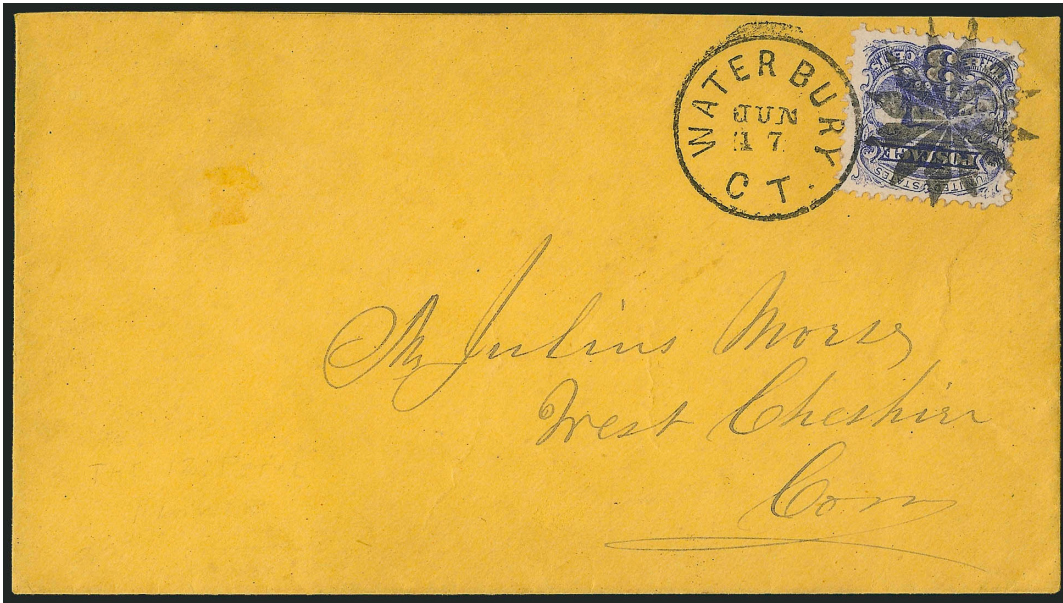 WATERBURY
JUN
17
CT.
POSTAGE
UNITED STATES
Mr Julius Morse
West Cheshire
Conn